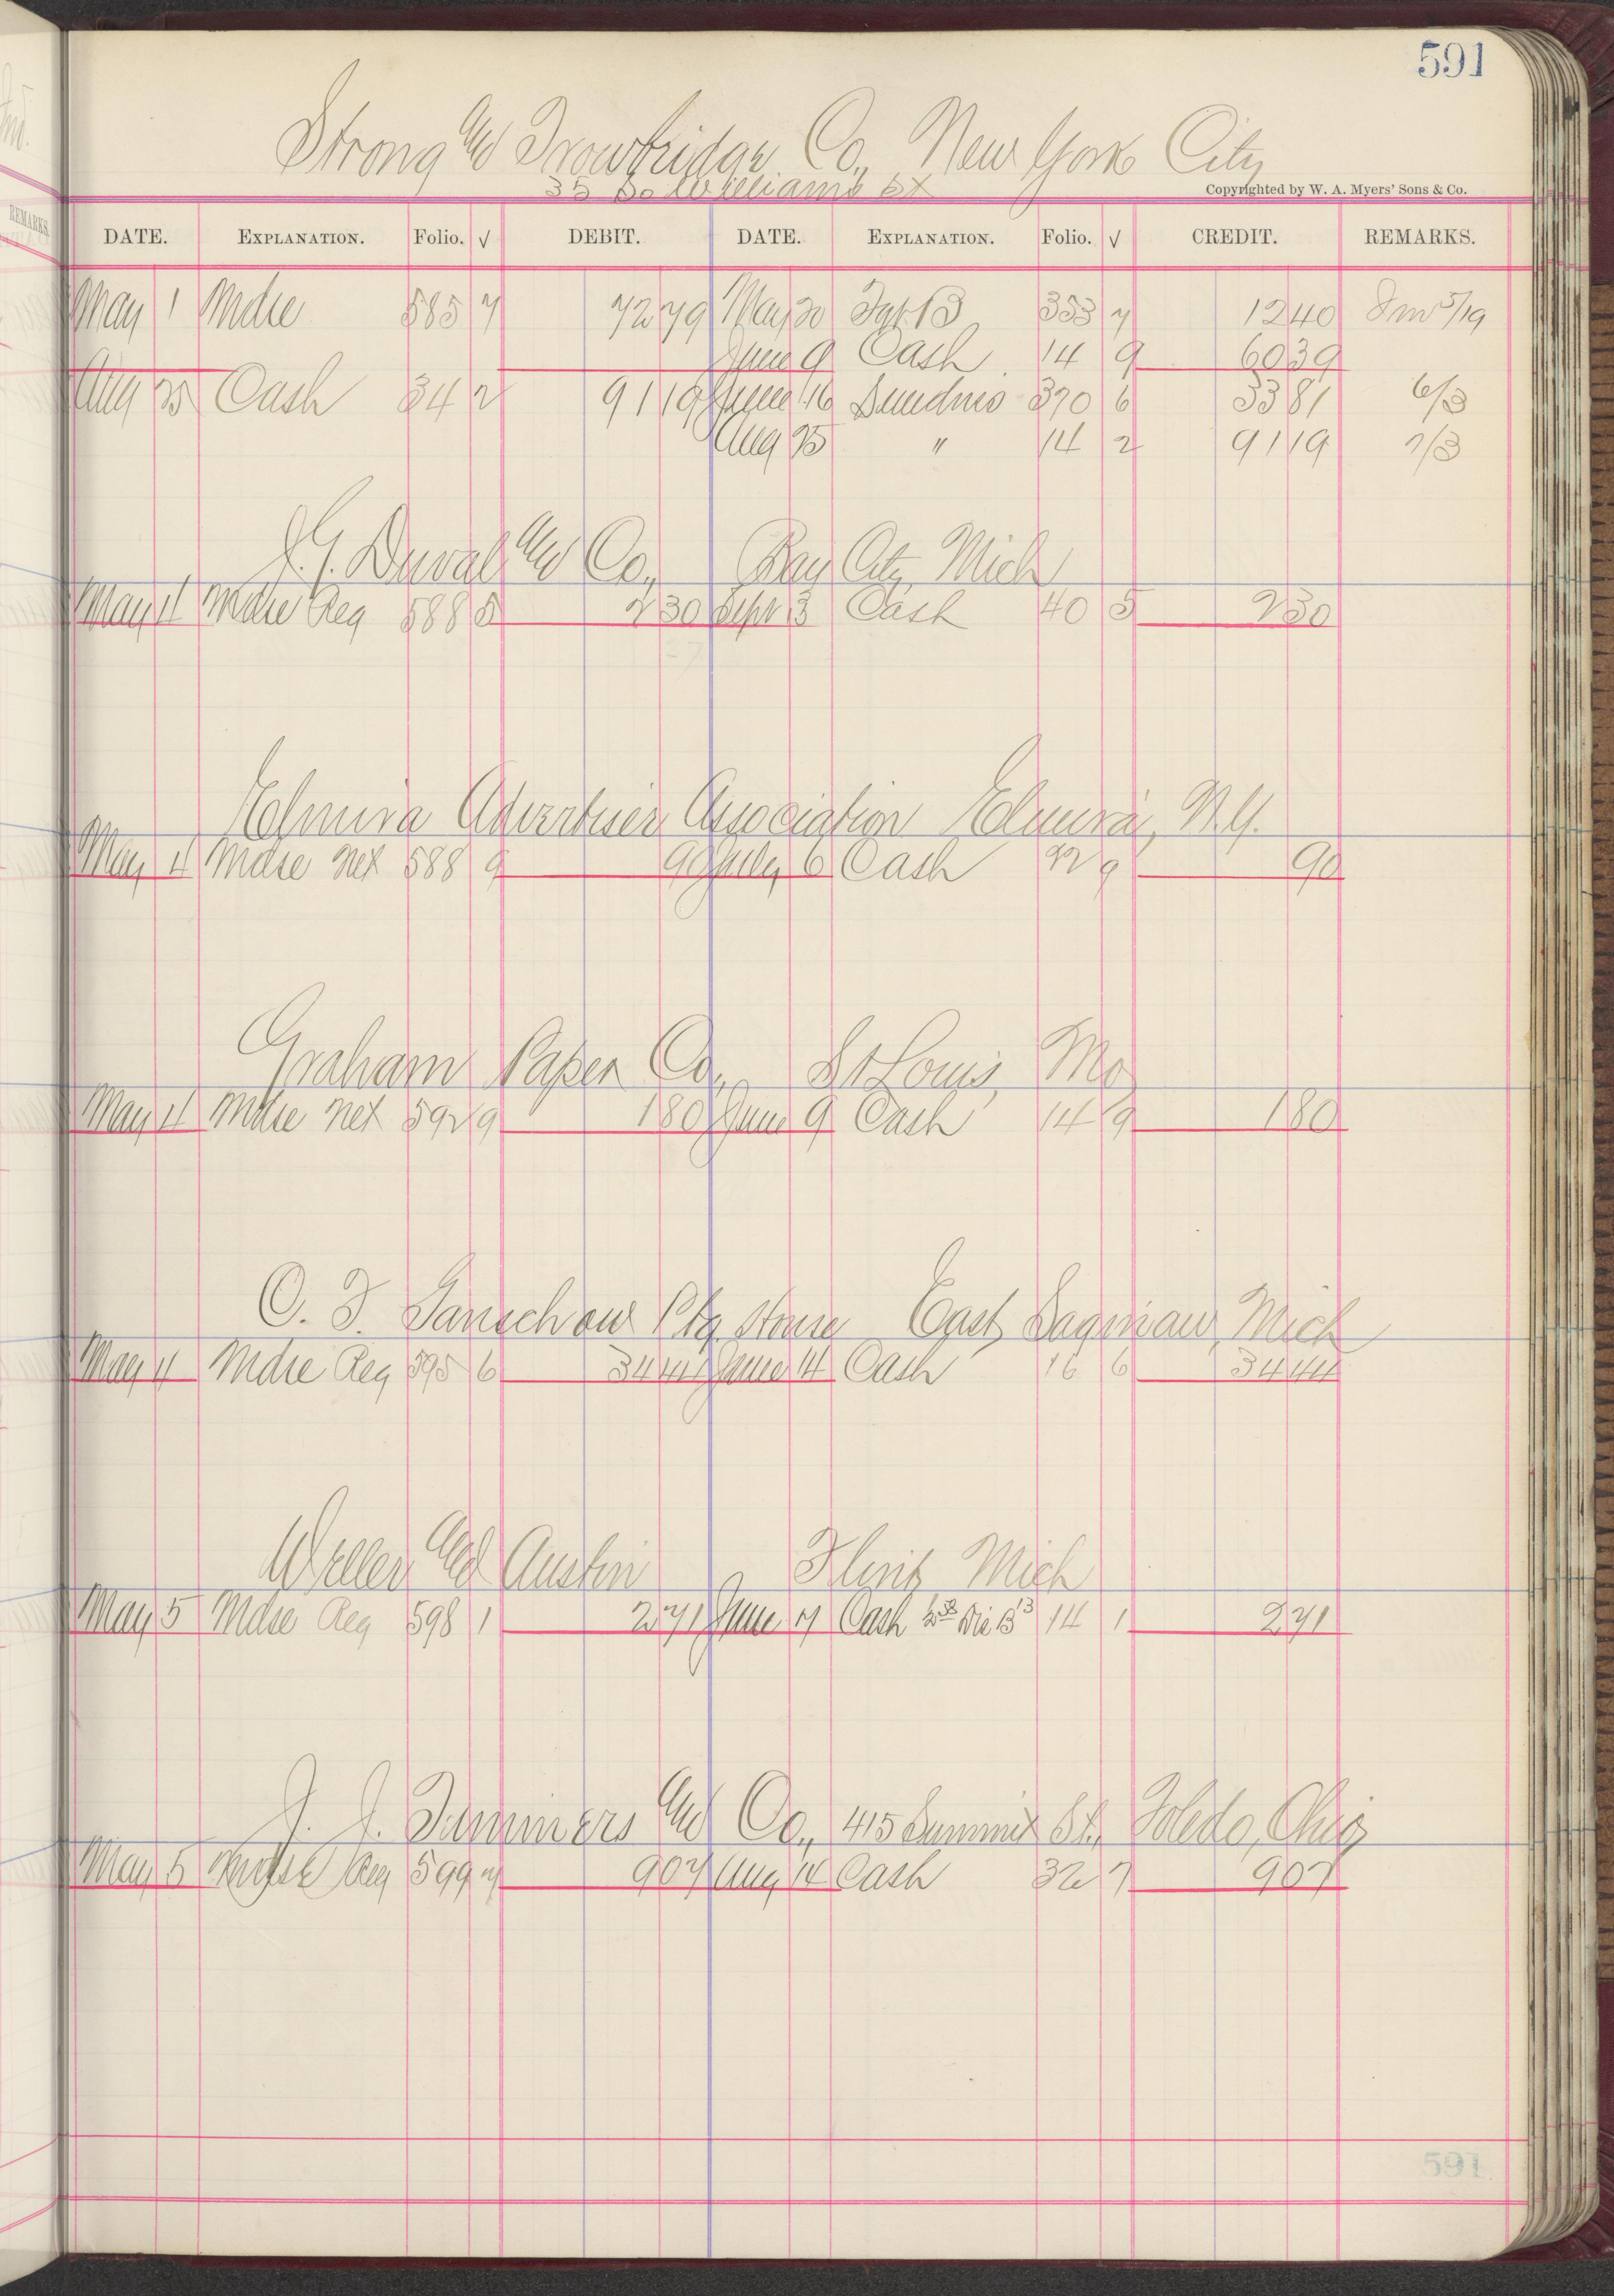 591
Strong and Trowbridge Co., New York City
35 So Williams St
Copyrighted by W. A. Myers' Sons & Co.
DATE. EXPLANATION. Folio. √ DEBIT. DATE. EXPLANATION. Folio. √ CREDIT. REMARKS.
May 1 Mdse 585 7 72 79 May 20 353 7 12 40 5/19
June 9 Cash 14 9 60 39
Aug 25 Cash 34 2 91 19 June 16 Sundries 370 6 33 81 6/3
Aug 25 " 14 2 91 19 7/3
J. G. Duval and Co., Bay City, Mich
May 4 Mdse Reg 588 5 2 30 Sept 3 Cash 40 5 2 30
Elmira Advertiser Association Elmira, N.Y.
May 4 Mdse net 588 9 90 July 6 Cash 22 9 90
Graham Paper Co., St Louis, Mo
May 4 Mdse net 592 9 1 80 June 9 Cash 14 9 1 80
O. F. Ganschow Ptg. House East Saginaw, Mich
May 4 Mdse Reg 595 6 34 44 June 14 Cash 16 6 34 44
Weller and Austin Flint, Mich
May 5 Mdse Reg 598 1 2 71 June 7 Cash 14 1 2 71
J. J. Timmers and Co., 415 Summit St., Toledo, Ohio
May 5 Mdse Reg 599 7 9 07 Aug 14 Cash 32 7 9 07
591
REMARKS.